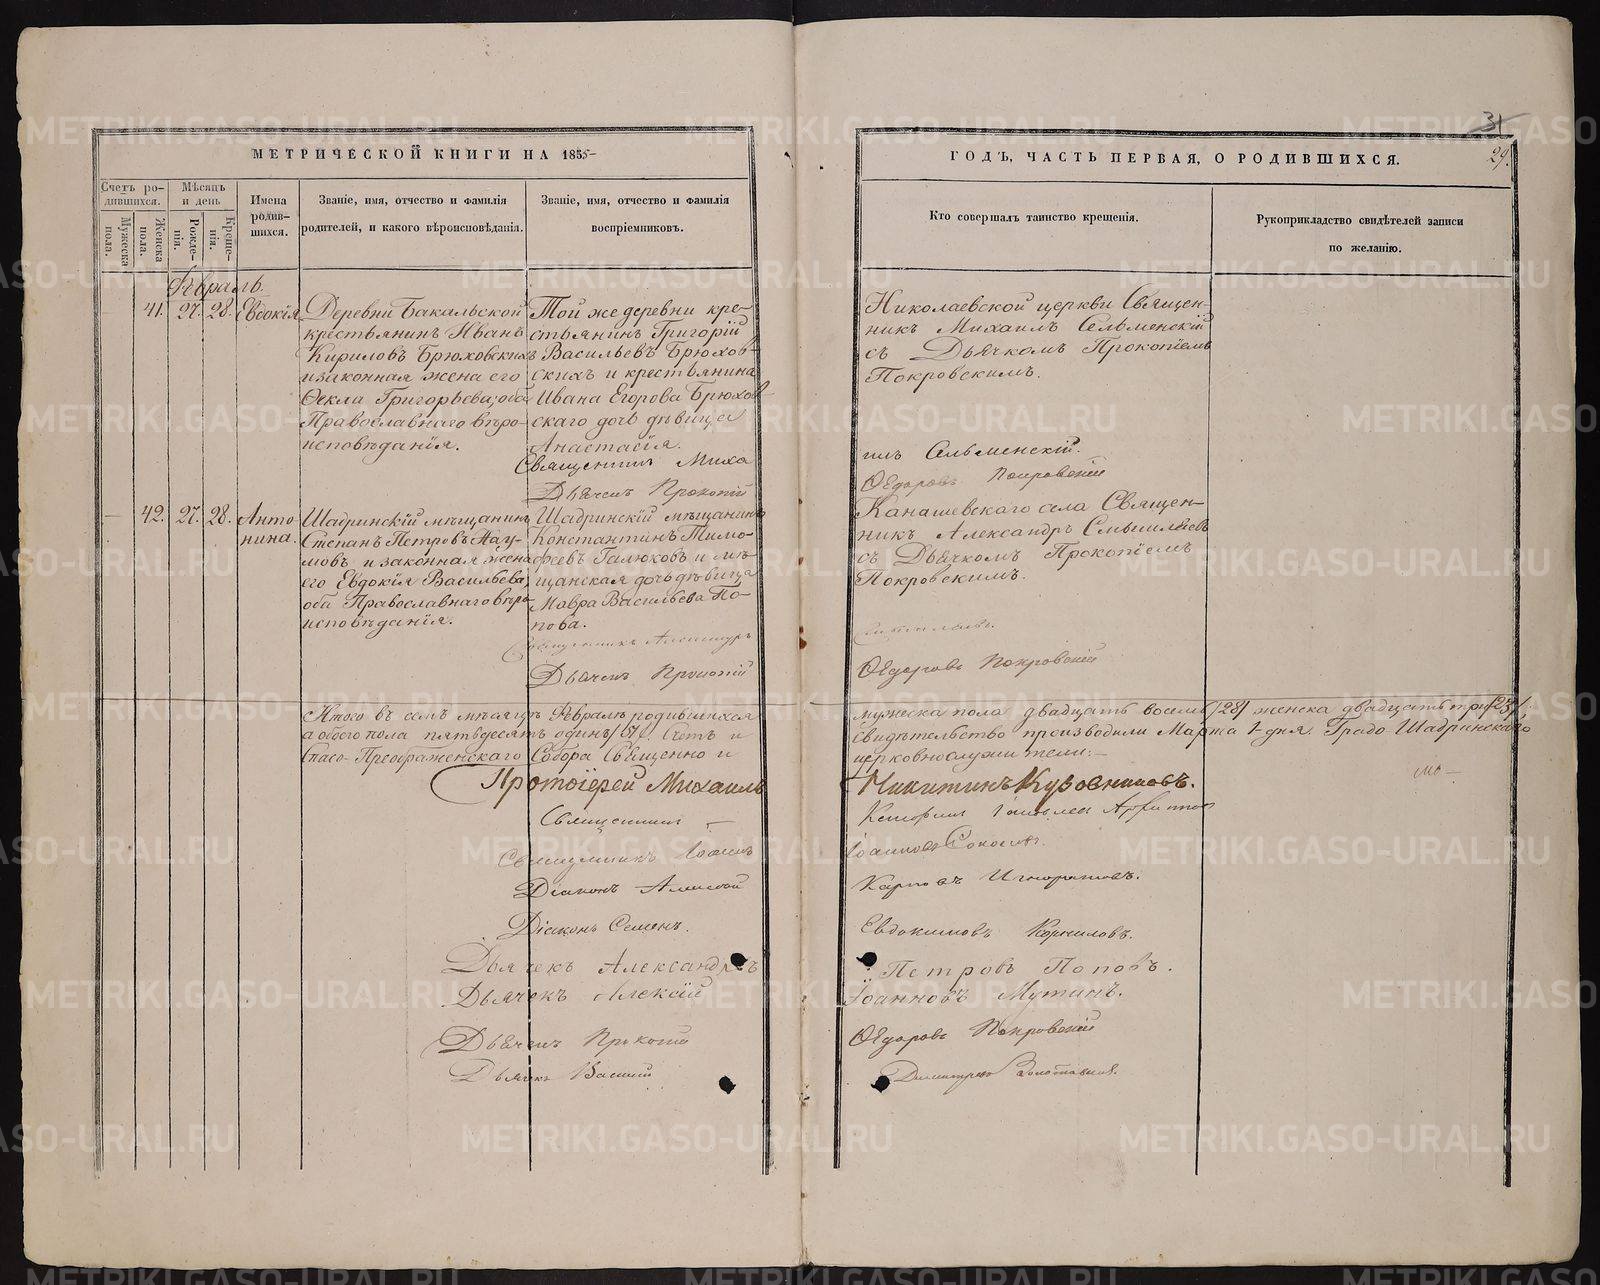 31
29.
МЕТРИЧЕСКОЙ КНИГИ НА 1855
ГОДЪ, ЧАСТЬ ПЕРВАЯ, О РОДИВШИХСЯ.
Счетъ ро-
дившихся.
Мужеска
пола.
Женска
пола.
Мѣсяцъ
и день
Рожде-
нія.
Креще-
нія.
Имена
родив-
шихся.
Званіе, имя, отчество и фамилія
родителей, и какого вѣроисповѣданія.
Званіе, имя, отчество и фамилія
воспріемниковъ.
Кто совершалъ таинство крещенія.
Рукоприкладство свидѣтелей записи
по желанію.
Февраль.
41. 27. 28. Евдокія
Деревни Бакальской
крестьянинъ Иванъ
Кириловъ Брюховскихъ
и законная жена его
Ѳекла Григорьева, оба
Православнаго вѣро-
исповѣданія.
Той же деревни кре-
стьянинъ Григорій
Васильевъ Брюхов-
скихъ и крестьянина
Ивана Егорова Брюхов-
скаго дочь дѣвица
Анастасія.
Николаевской церкви Священ-
никъ Михаилъ Сельменскій
съ Дьячкомъ Прокопіемъ
Покровскимъ.
Священникъ Миха
илъ Сельменскій.
Дьячекъ Прокопій
Ѳедоровъ Покровскій
42. 27. 28. Анто
нина.
Шадринскій мѣщанинъ
Степанъ Петровъ Нау-
мовъ и законная жена
его Евдокія Васильева,
оба Православнаго вѣро-
исповѣданія.
Шадринскій мѣщанинъ
Константинъ Тимо-
феевъ Галюковъ и мѣ-
щанская дочь дѣвица
Мавра Васильева По-
пова.
Канашевскаго села Священ-
никъ Александръ Смышляевъ
съ Дьячкомъ Прокопіемъ
Покровскимъ.
Священникъ Александръ
Дьячекъ Прокопій
Ѳедоровъ Покровскій
Итого въ семъ мѣсяцѣ Февралѣ родившихся
мужеска пола двадцать восемь /28/ женска двадцать три /23/,
а обоего пола пятьдесятъ одинъ /51/. Счетъ и
свидѣтельство производили Марта 1 дня. Градо-Шадринскаго
Спасо-Преображенскаго Собора Священно и
церковнослужители:
Протоіерей Михаилъ
Никитинъ Кузовниковъ.
Священникъ
Священникъ Іоаннъ
Іоанновъ Соколовъ.
Діаконъ Алексѣй
Карповъ
Діаконъ Семенъ.
Евдокимовъ Корниловъ.
Дьячекъ Александръ
Петровъ Поповъ.
Дьячекъ Алексій
Іоанновъ Мутинъ.
Дьячекъ Прокопій
Ѳедоровъ Покровскій
Дьячекъ Василій
Димитріевъ
METRIKI.GASO-URAL.RU